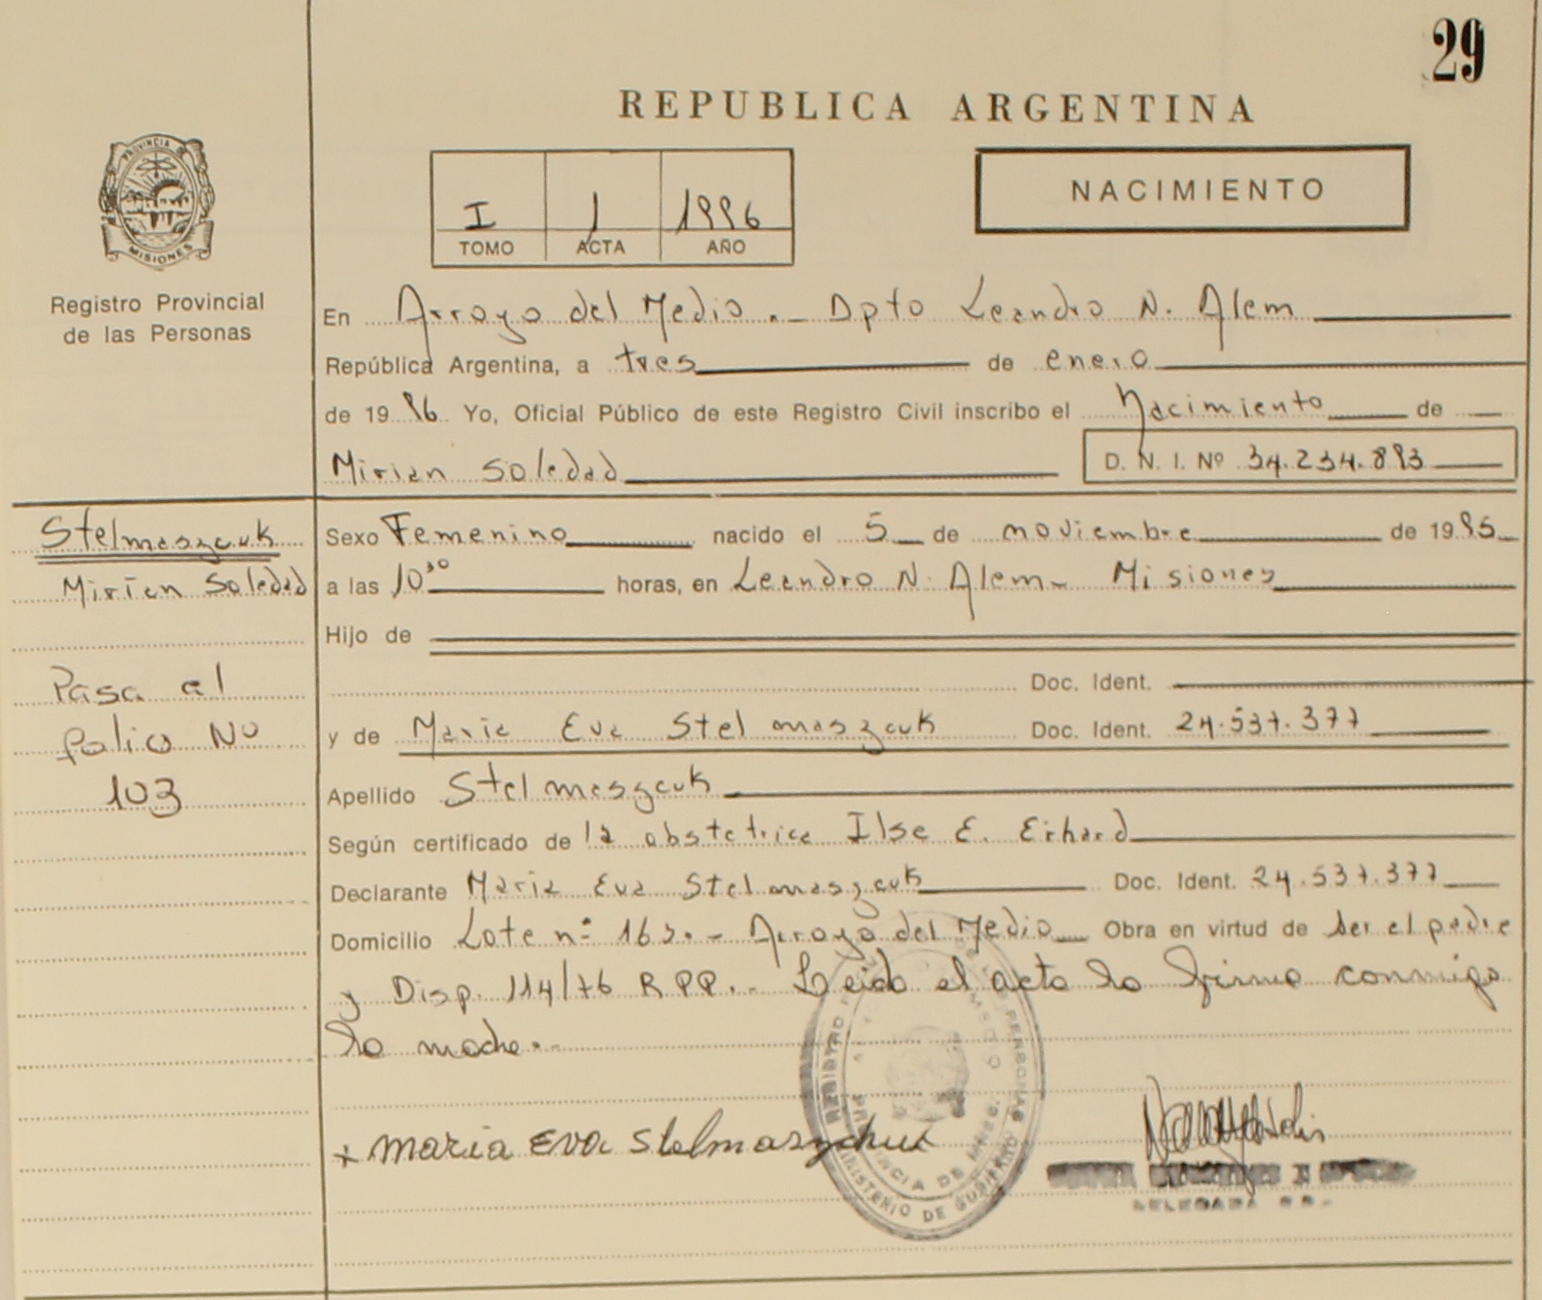 29
REPUBLICA ARGENTINA
PROVINCIA DE
MISIONES
Registro Provincial
de las Personas
I 1 1986
TOMO ACTA AÑO
NACIMIENTO
En Arroyo del Medio.- Dpto Leandro N. Alem
República Argentina, a tres de enero
de 1986 Yo, Oficial Público de este Registro Civil inscribo el Nacimiento de
Mirian Soledad D. N. I. Nº 34.234.883
Stelmaszcuk
Mirian Soledad
Pasa al
folio Nº
103
Sexo Femenino nacido el 5 de noviembre de 1985
a las 10³⁰ horas, en Leandro N. Alem - Misiones
Hijo de
Doc. Ident.
y de Maria Eva Stelmaszcuk Doc. Ident. 24.537.377
Apellido Stelmaszcuk
Según certificado de la obstetrica Ilse E. Erhard
Declarante Maria Eva Stelmaszcuk Doc. Ident. 24.537.377
Domicilio Lote nº 163.- Arroyo del Medio Obra en virtud de ser el padre
y Disp. 114/76 RPP.- Leido el acta la firma conmigo
la madre.-
+ maria Eva Stelmaszchuk
MINISTERIO DE GOBIERNO
DELEGADA